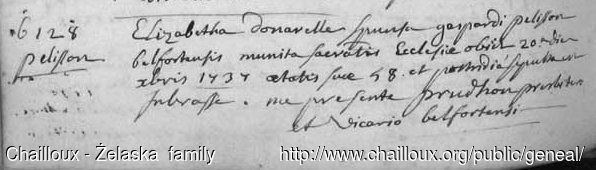 6128 Elizabetha donarelle sponsa gaspardi pelisson
pelisson belfortensis munita sacratis Ecclesie obiit 20a die
xbris 1737 aetatis sue 58. et postridie sepulta
in brasse. me presente prudhon presbitero
et vicario belfortensi
Chailloux - Żelaska family http://www.chailloux.org/public/geneal/